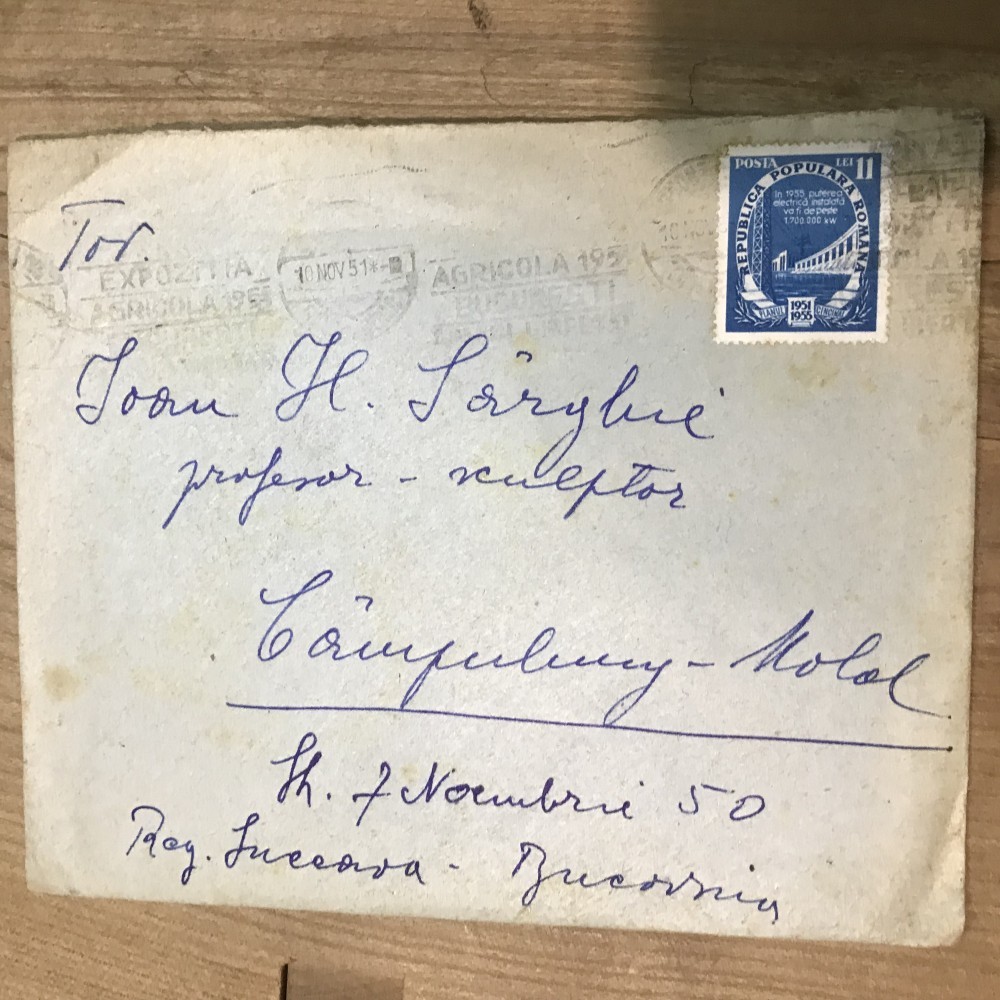 POSTA LEI 11
REPUBLICA POPULARA ROMANA
In 1955 puterea
electrică instalată
va fi de peste
1.700.000 kw
1951
1955
PLANUL CINCINAL
Tov.
EXPOZITIA 10 NOV 51 AGRICOLA 195
AGRICOLA 1951
Ioan H. Sârghie
profesor - sculptor
Câmpulung - Mold
Str. 7 Noembrie 50
Reg. Suceava - Bucovina